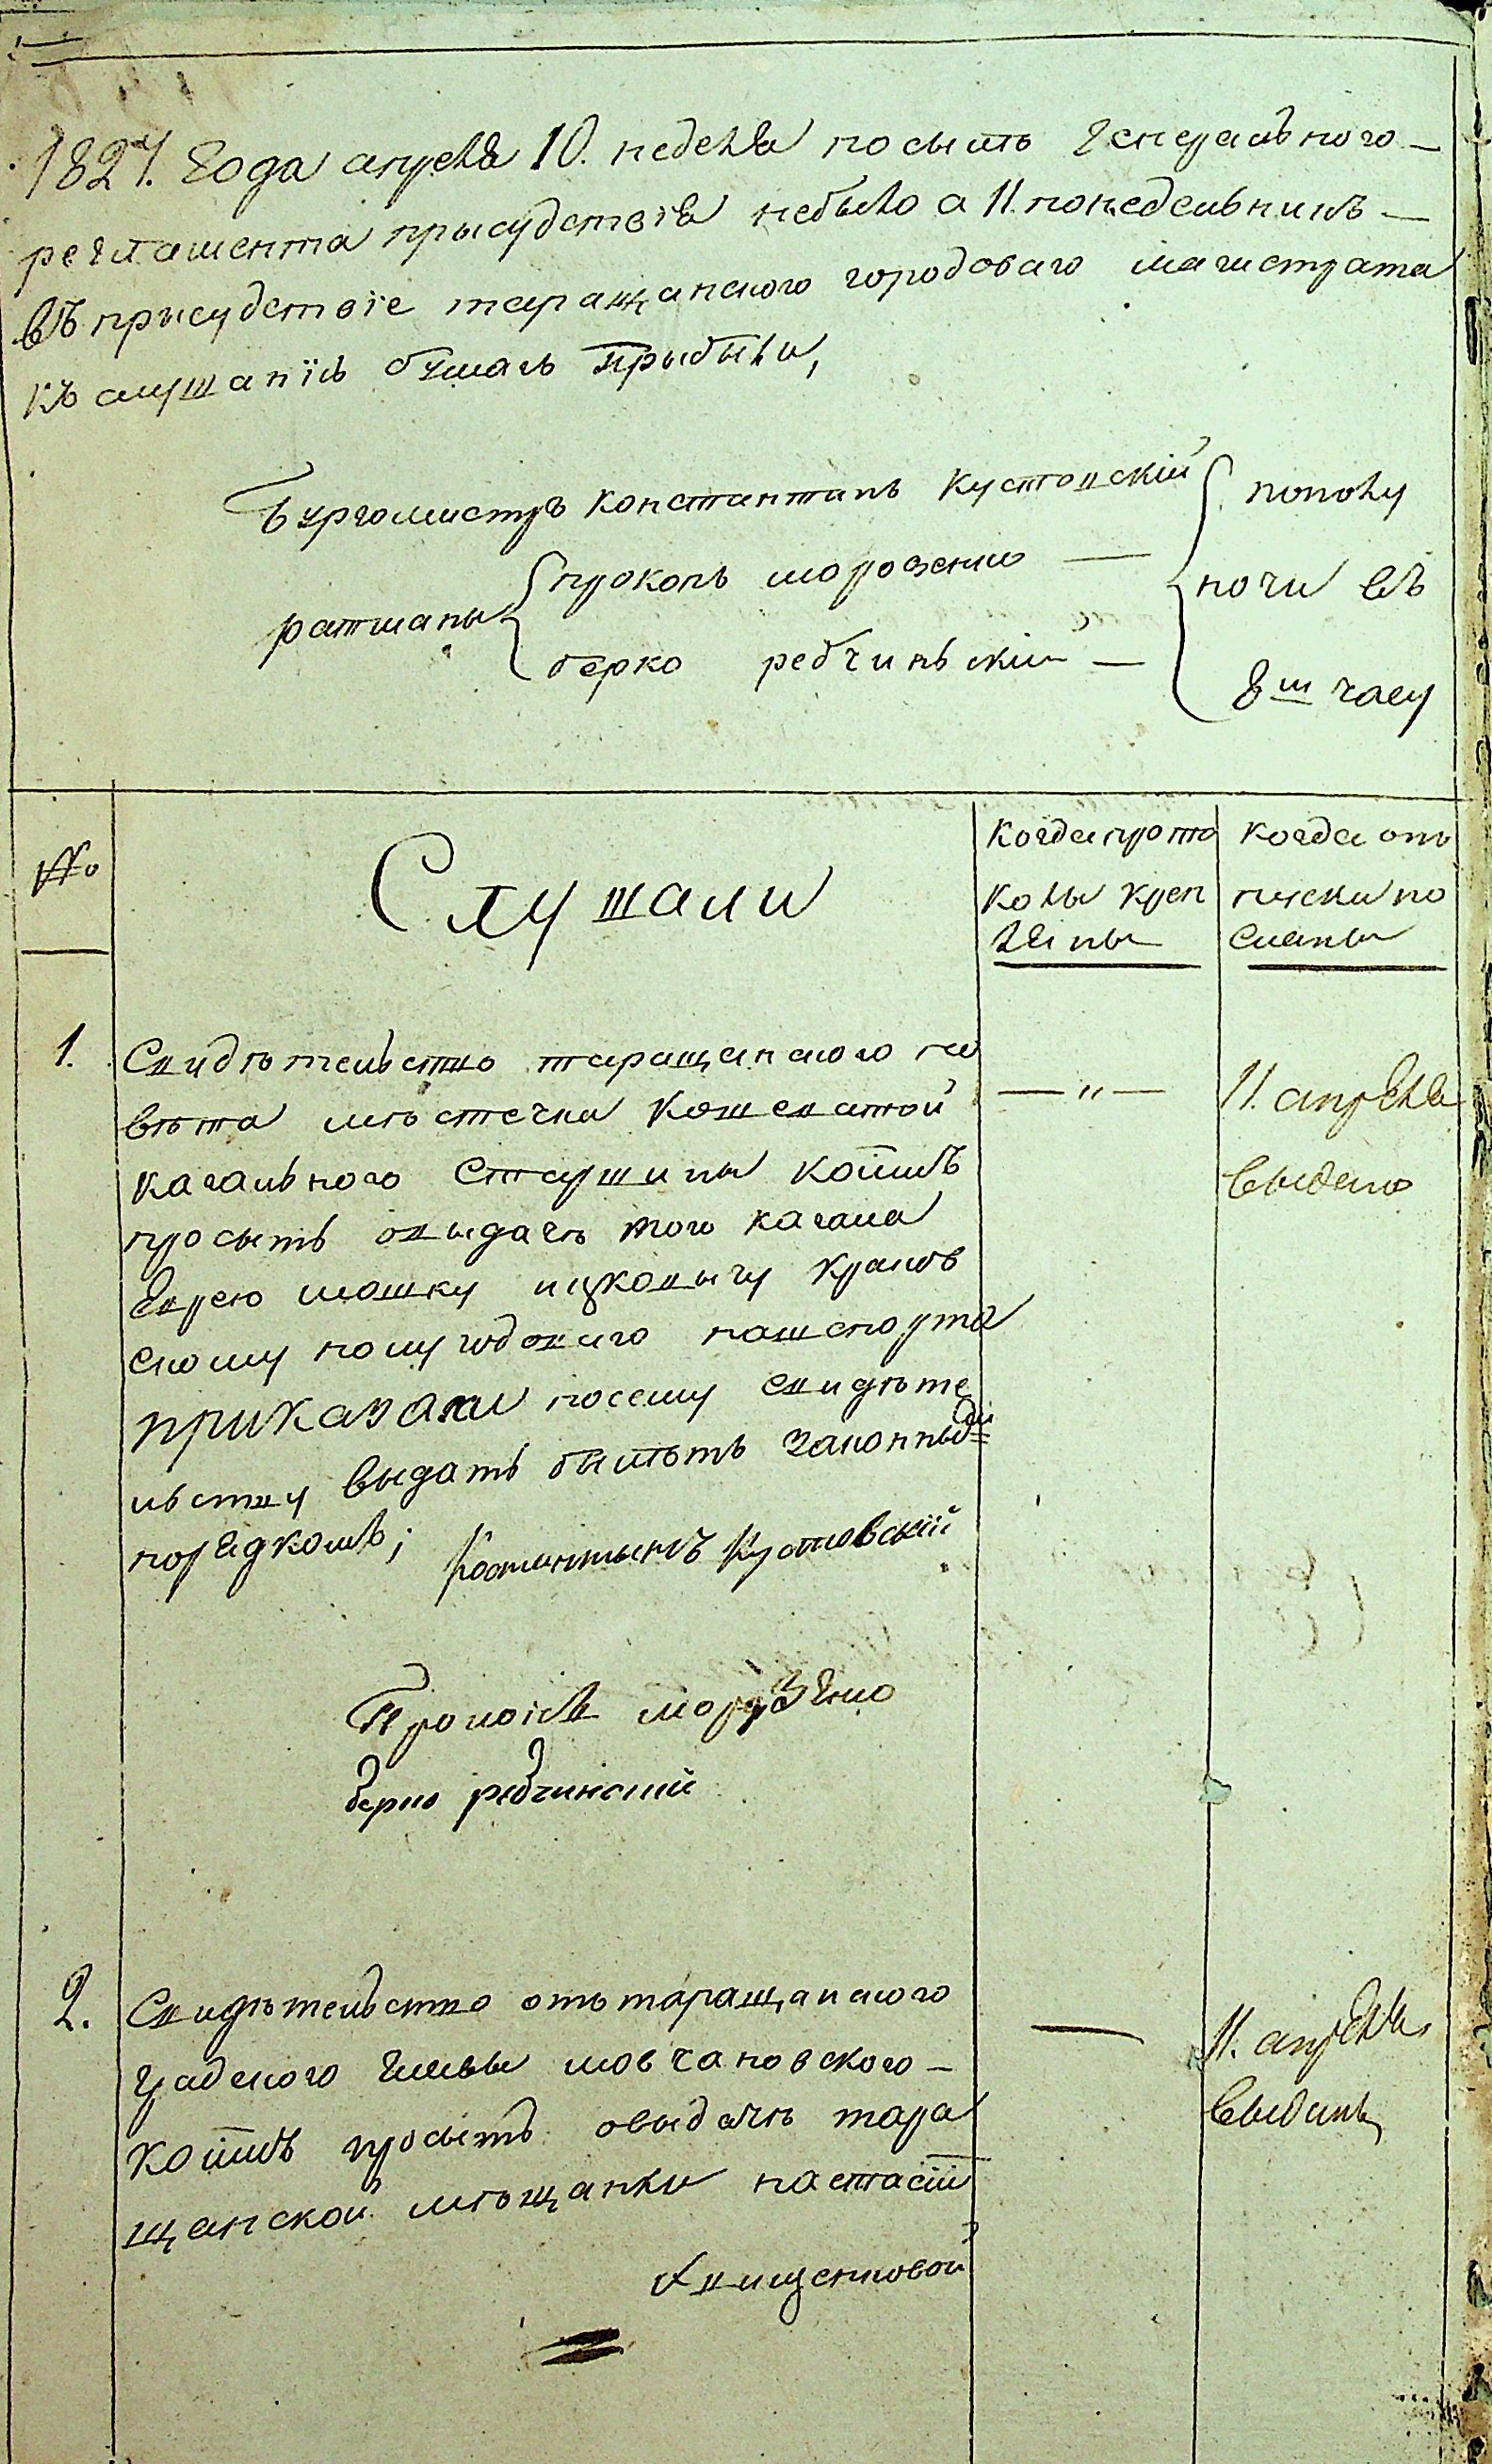 1827. года апреля 10. неделя посылѣ генерального
регламента прысудствія небыло а 11. понедельникъ
въ прысудствіе таращанского городоваго магистрата
къ слушанію бумагъ прыбыли,
Бургомистръ Константинъ Кустовскій
ратманы
прокопъ морозенко
берко ребчиньскій
пополу
ночи въ
8м часу
№
Слушали
Когда прото
колы креп
лены
Когда от
пуски по
сланы
1.
Свидѣтельство таращанского по
вѣта мѣстечка Кошеватой
кагального Старшины коимъ
просытъ овыдачѣ того кагала
Еврею мошку ицковычу
скому полугодоваго пашпорта
приказали посему свидѣте
льству выдать билѣтъ законным
порядкомъ;
Костантынъ Кустовскій
— " —
11. апреля
выдано
морозенко
Берко ребчинский
2.
Свидѣтельство отъ таращанского
градского главы мовчановского
коимъ просытъ овыдачѣ тара
щанской мѣщанки настасіи
—
11. апреля
выданъ